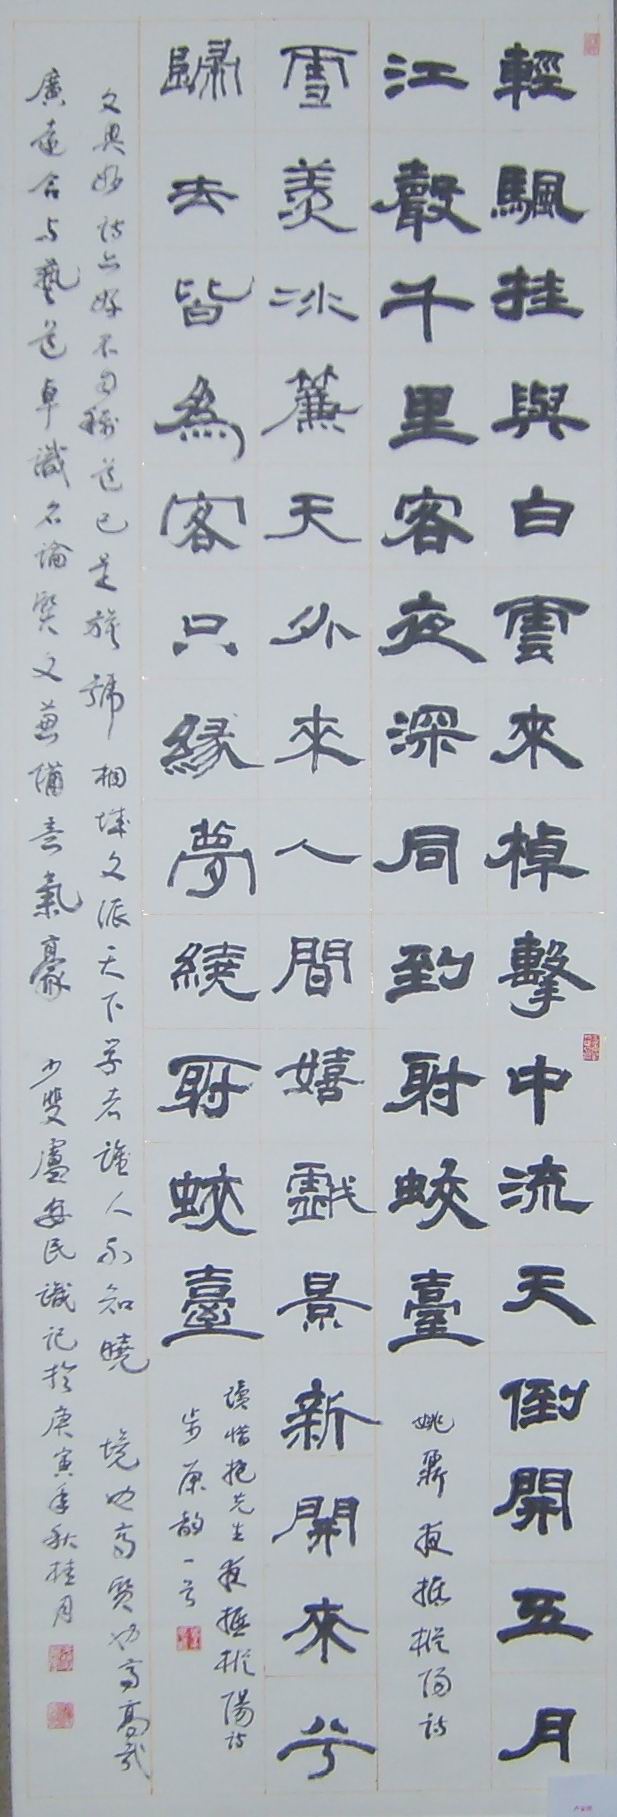 輕颿挂與白雲來棹擊中流天倒開五月
江聲千里客夜深同到射蛟臺
姚鼐夜抵樅陽詩
雪羨冰簾天外來人間嬉戲景新開來兮
歸去皆為客只緣夢繞射蛟臺
讀惜抱先生夜抵樅陽詩
步原韵一首
文與好詩亦好不自稱道已是旌號桐城文派天下学者誰人不知曉 境也高賢也高高哉
廣遠合与藝道卓識名論賢文兼備意氣豪 少雙盧安民識記於庚寅年秋桂月